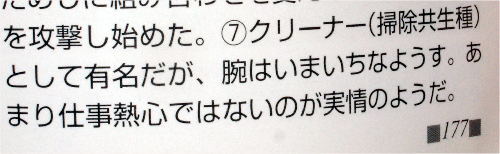 を攻撃し始めた。⑦クリーナー(掃除共生種)
として有名だが、腕はいまいちなようす。あ
まり仕事熱心ではないのが実情のようだ。
■177■